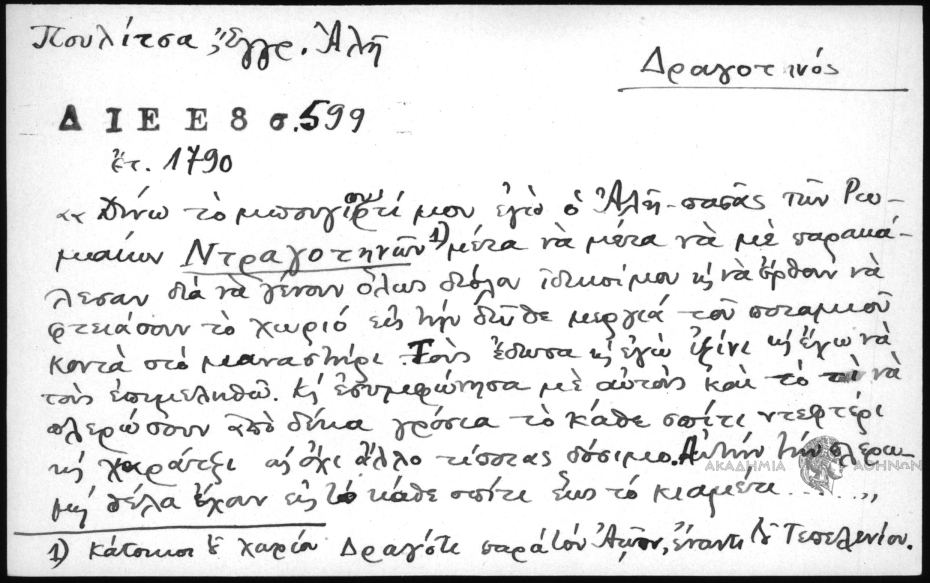 Πουλίτσα, Ἔγγρ. Ἀλῆ
Δραγοτινός
Δ Ι Ε Ε 8 σ. 599
ἔτ. 1790
«Δίνω τὸ μπουγιουρτί μου ἐγὼ ὁ Ἀλῆ-πασᾶς τῶν Ρω-
μαίων Ντραγοτηνῶν 1) μέτα νὰ μέτα νὰ μὲ παρακά-
λεσαν διὰ νὰ γένουν ὅλως διόλου ἰδικοί μου κὴ νὰ ἔρθουν νὰ
φτειάσουν τὸ χωριὸ εἰς τὴν δῶθε μεργιά τοῦ ποταμιοῦ
κοντὰ στὸ μαναστήρι. Τοὺς ἔδωσα κὴ ἐγὼ κὴ ἔγω νὰ
τοὺς ἐπιμεληθῶ. Κὴ ἐσυμφώνησα μὲ αὐτοὺς καὶ τὸ νὰ
πλερώσουν ἀπὸ δέκα γρόσια τὸ κάθε σπίτι ντεφτέρι
κὴ χαράτζι κὴ ὄχι ἄλλο τίποτας δόσιμο. Αὐτὴν τὴν πλερω-
μὴ θέλα ἔχουν εἰς τὸ κάθε σπίτι ἕως τὸ κιαμέτι........»
1) κάτοικοι τοῦ χωρίου Δραγότι παρὰ τὸν Ἀῶον, ἔναντι τοῦ Τεπελενίου.
ΑΚΑΔΗΜΙΑ ΑΘΗΝΩΝ